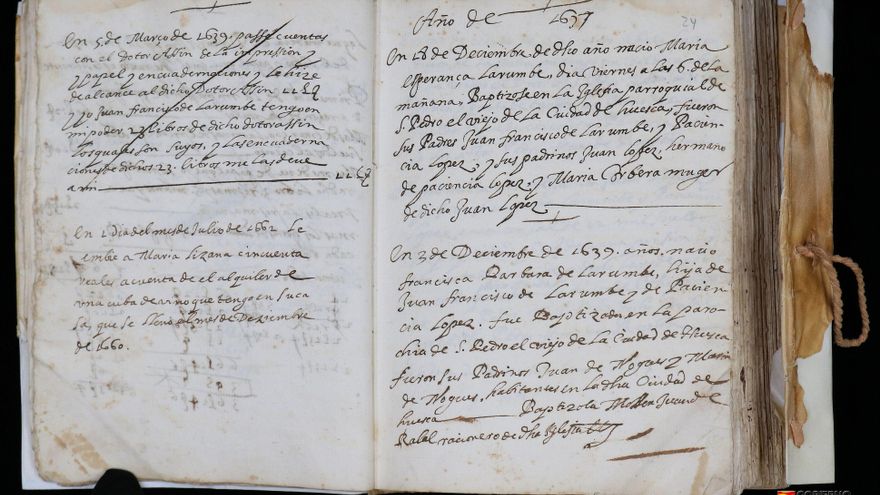 En 5 de Março de 1639. passe cuentas
con el dotor Assin de la impression y
papel y encuadernaciones y le hize
de alcance al dicho Dotor Assin
y yo Juan francisco de Larumbe tengo en
mi poder 23 libros de dicho dotor assin
los quales son suyos, y las encuaderna
ciones de dichos 23. libros me las deve
a mi
En 1 dia del mes de Julio de 1662 le
embie a Maria Lizana cincuenta
reales a cuenta de el alquiler de
una cuba de vino que tengo en su ca
sa, que se lleno al mes de Deziembre
de 1660.
Año de 1637
24
En 18 de Deciembre de dho año nacio Maria
esperança Larumbe, dia Viernes a las 6. de la
mañana, Baptizose en la Iglesia parroquial de
S. Pedro el viejo de la Ciudad de huesca, fueron
sus Padres Juan francisco de Larumbe, y Pacien-
cia Lopez, y sus padrinos Juan Lopez, hermano
de paciencia Lopez, y Maria Corbera muger
de dicho Juan Lopez
En 3 de Deciembre de 1639. años. nacio
francisca Barbara de Larumbe, hija de
Juan francisco de Larumbe y de Pacien
cia Lopez. fue Baptizada en la paro
chia de S. Pedro el viejo de la Ciudad de Huesca
fueron sus Padrinos Juan de Nogues y Maria
de Nogues, habitantes en la dha Ciudad de
huesca Baptizola Mossen
Ralel racionero de dha Iglesia
GOBIERNO